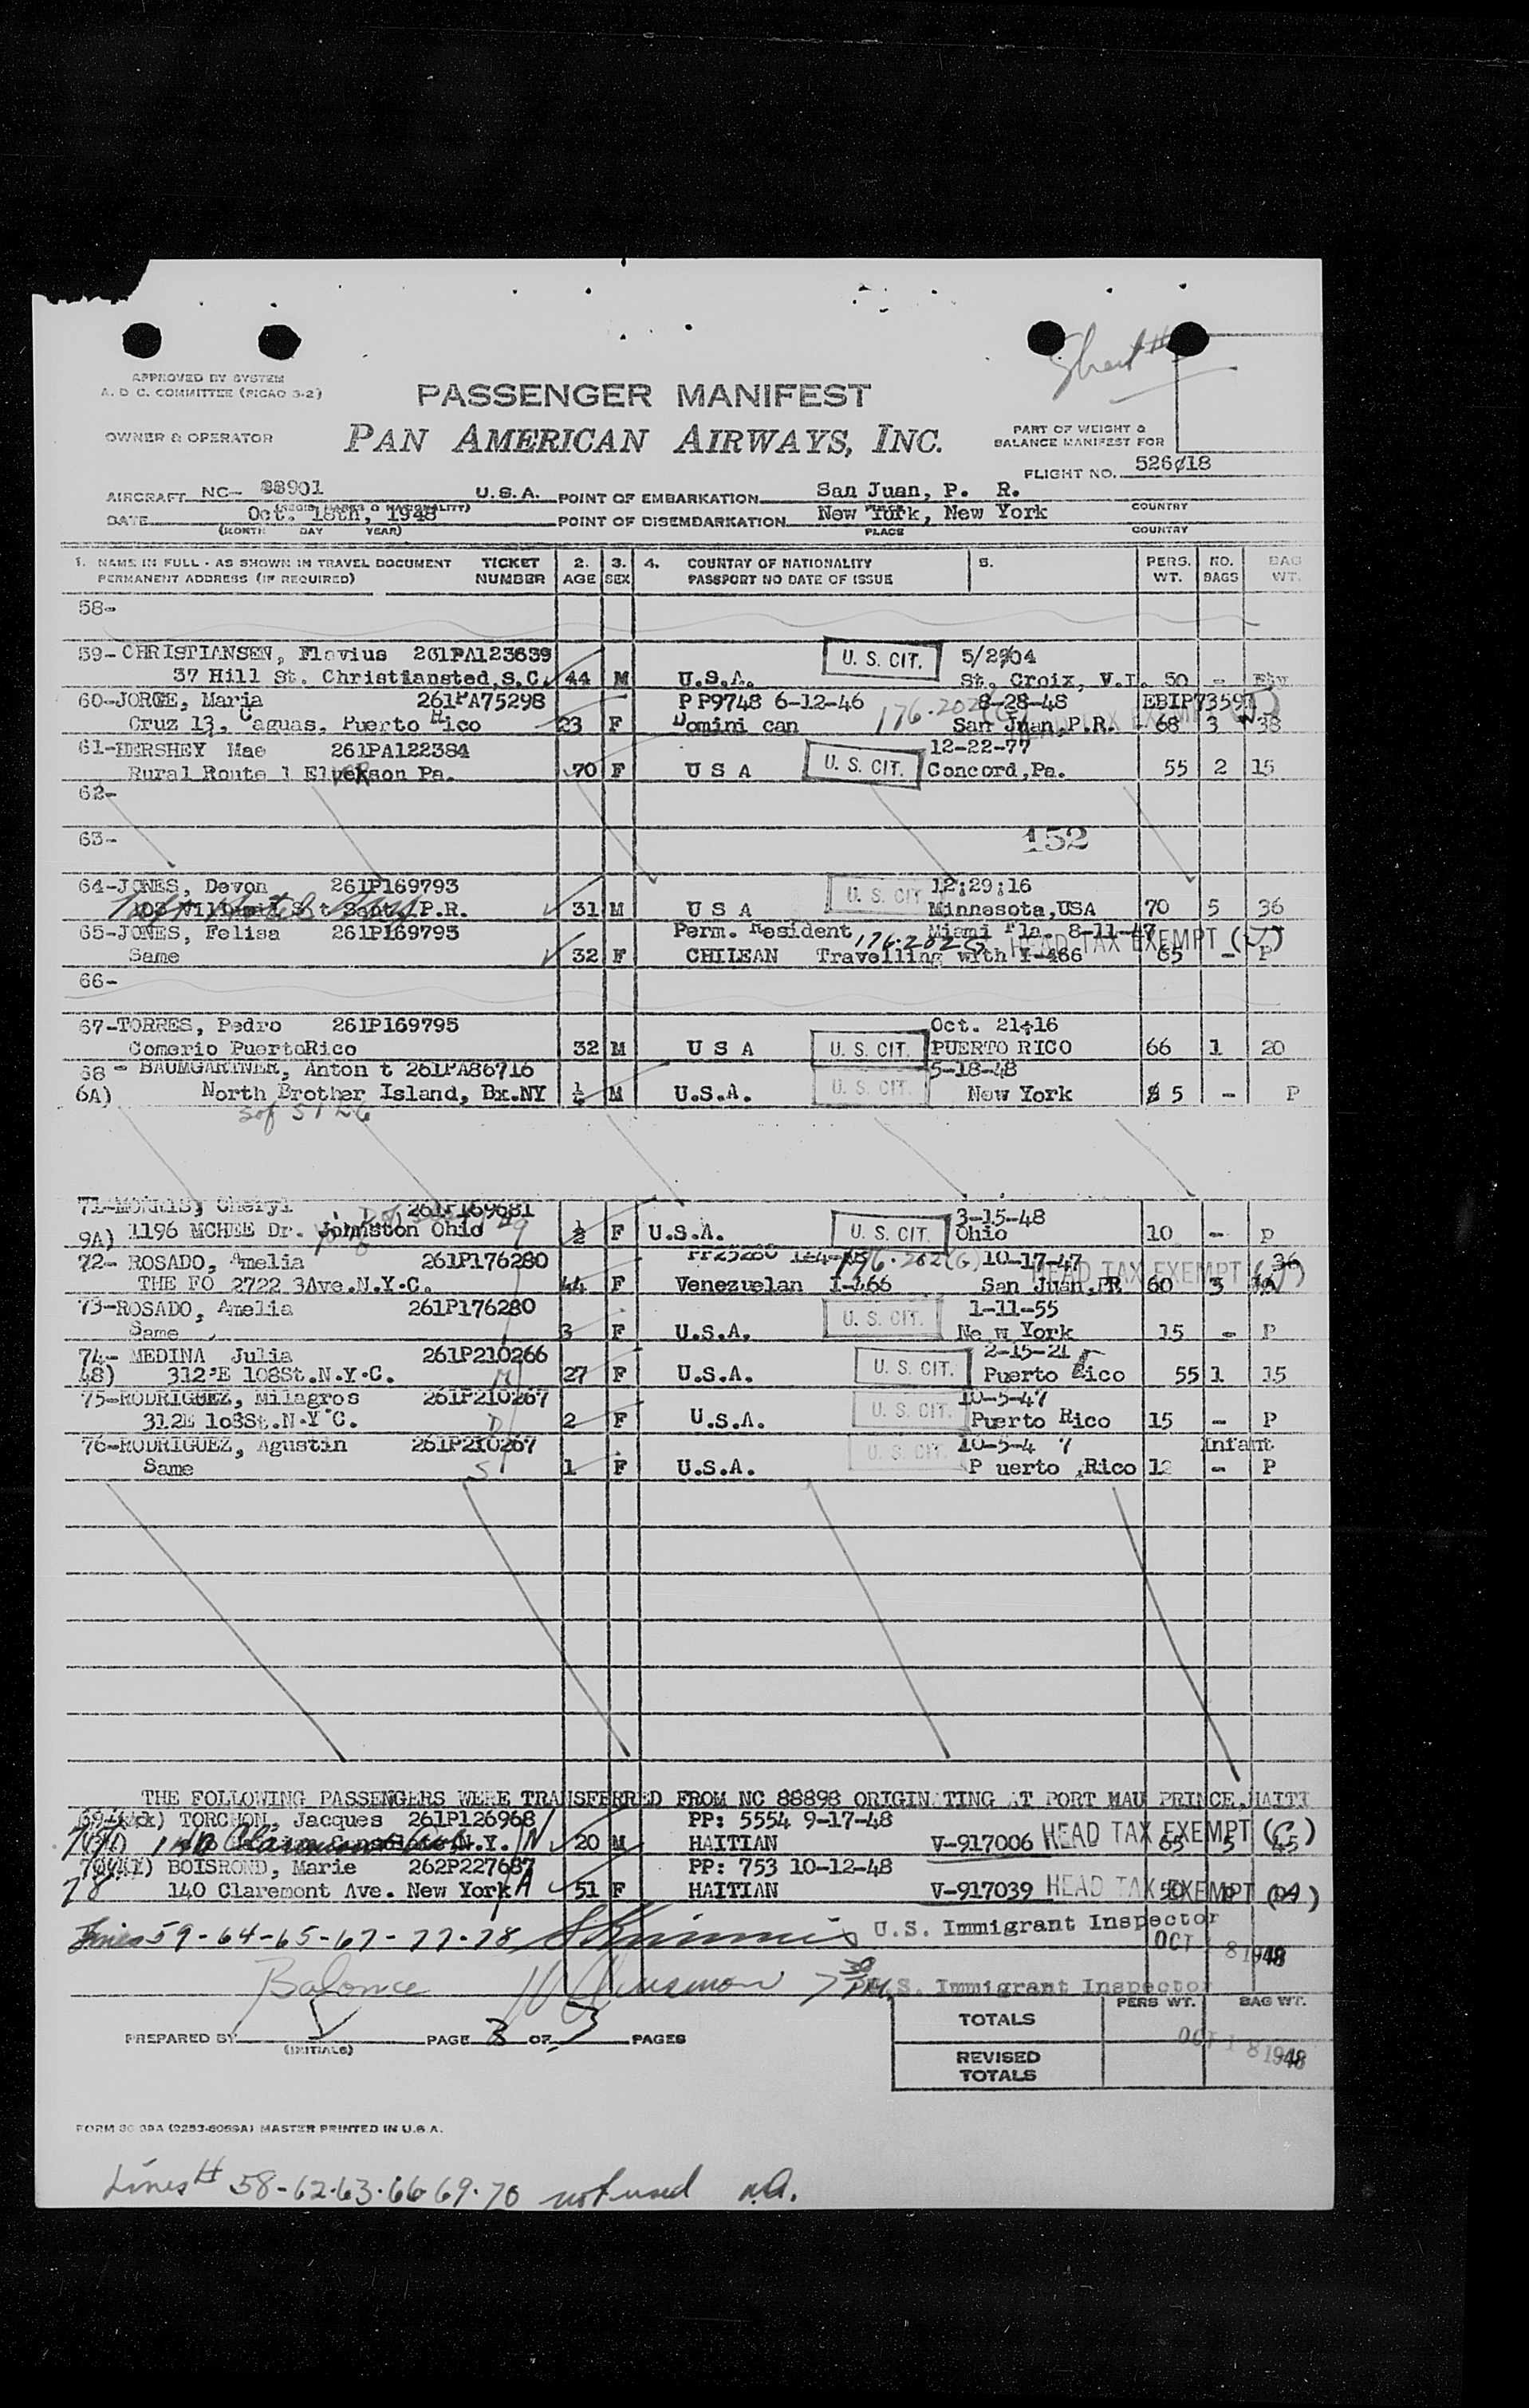 APPROVED BY SYSTEM
A. D C. COMMITTEE (PICAO 3-2)
Sheet #
PASSENGER MANIFEST
OWNER & OPERATOR
PAN AMERICAN AIRWAYS, INC.
PART OF WEIGHT &
BALANCE MANIFEST FOR
FLIGHT NO. 526/18
AIRCRAFT NC- 88901 U.S.A. POINT OF EMBARKATION San Juan, P. R.
COUNTRY
DATE Oct. 18th, 1948 POINT OF DISEMBARKATION New York, New York
(MONTH DAY YEAR) PLACE COUNTRY
1. NAME IN FULL - AS SHOWN IN TRAVEL DOCUMENT TICKET 2. 3. 4. COUNTRY OF NATIONALITY 5. PERS. NO. BAG
PERMANENT ADDRESS (IF REQUIRED) NUMBER AGE SEX PASSPORT NO DATE OF ISSUE WT. BAGS WT.
58-
59- CHRISTIANSEN, Flavius 261PA123639 U. S. CIT. 5/2/04
37 Hill St. Christiansted,S.C. 44 M U.S.A. St. Croix, V.I. 50 -
60-JORGE, Maria 261PA75298 P P9748 6-12-46 8-28-48
Cruz 13, Caguas, Puerto Rico 23 F Domini can San Juan,P.R. 68 3 38
61-HERSHEY Mae 261PA122384 12-22-77
Rural Route 1 Pa. 70 F U S A U. S. CIT. Concord,Pa. 55 2 15
62-
63- 152
64-JONES, Devon 261P169793 U. S. CIT 12;29;16
P.R. 31 M U S A Minnesota,USA 70 5 36
65-JONES, Felisa 261P169795 Perm. Resident Miami Fla. 8-11-47
Same 32 F CHILEAN 176.202 G Travelling with I-466 HEAD TAX EXEMPT (J) 65 - P
66-
67-TORRES, Pedro 261P169795 Oct. 21-16
Comerio PuertoRico 32 M U S A U. S. CIT. PUERTO RICO 66 1 20
68 - BAUMGARTNER, Anton t 261PA86716 5-18-48
6A) North Brother Island, Bx.NY M U.S.A. U. S. CIT. New York 5 - P
71-MORRIS, Cheryl 261P169681 3-15-48
9A) 1196 MCHEE Dr. Johnston Ohio ½ F U.S.A. U. S. CIT. Ohio 10 - P
72- ROSADO, Amelia 261P176280 176.202(G) 10-17-47 36
THE FO 2722 3Ave.N.Y.C. 44 F Venezuelan I-466 San Juan,PR HEAD TAX EXEMPT 60 3
73-ROSADO, Amelia 261P176280 U. S. CIT. 1-11-55
Same 3 F U.S.A. Ne w York 15 - P
74- MEDINA Julia 261P210266 2-15-21
48) 312 E 108St.N.Y.C. 27 F U.S.A. U. S. CIT. Puerto Rico 55 1 15
75-RODRIGUEZ, Milagros 261P210267 10-5-47
312E 108St.N.Y.C. 2 F U.S.A. U. S. CIT. Puerto Rico 15 - P
76-RODRIGUEZ, Agustin 261P210267 10-5-4 7 Infant
Same 1 F U.S.A. U. S. CIT. P uerto ,Rico 12 - P
THE FOLLOWING PASSENGERS WERE TRANSFERRED FROM NC 88898 ORIGINATING AT PORT MAU PRINCE,HAITI
TORCHON, Jacques 261P126968 PP: 5554 9-17-48
N.Y. 20 M HAITIAN V-917006 HEAD TAX EXEMPT (C) 65 5 45
BOISROND, Marie 262P227687 PP: 753 10-12-48
78 140 Claremont Ave. New York 51 F HAITIAN V-917039 HEAD TAX EXEMPT 50
Lines 59-64-65-67-77-78 U.S. Immigrant Inspector
OCT 18 1948
Balance U.S. Immigrant Inspector
PREPARED BY (INITIALS) PAGE 3 OF 3 PAGES
PERS WT. BAG WT.
TOTALS
OCT 18 1948
REVISED
TOTALS
MASTER PRINTED IN U.S.A.
Lines # 58-62-63-66-69-70 not used